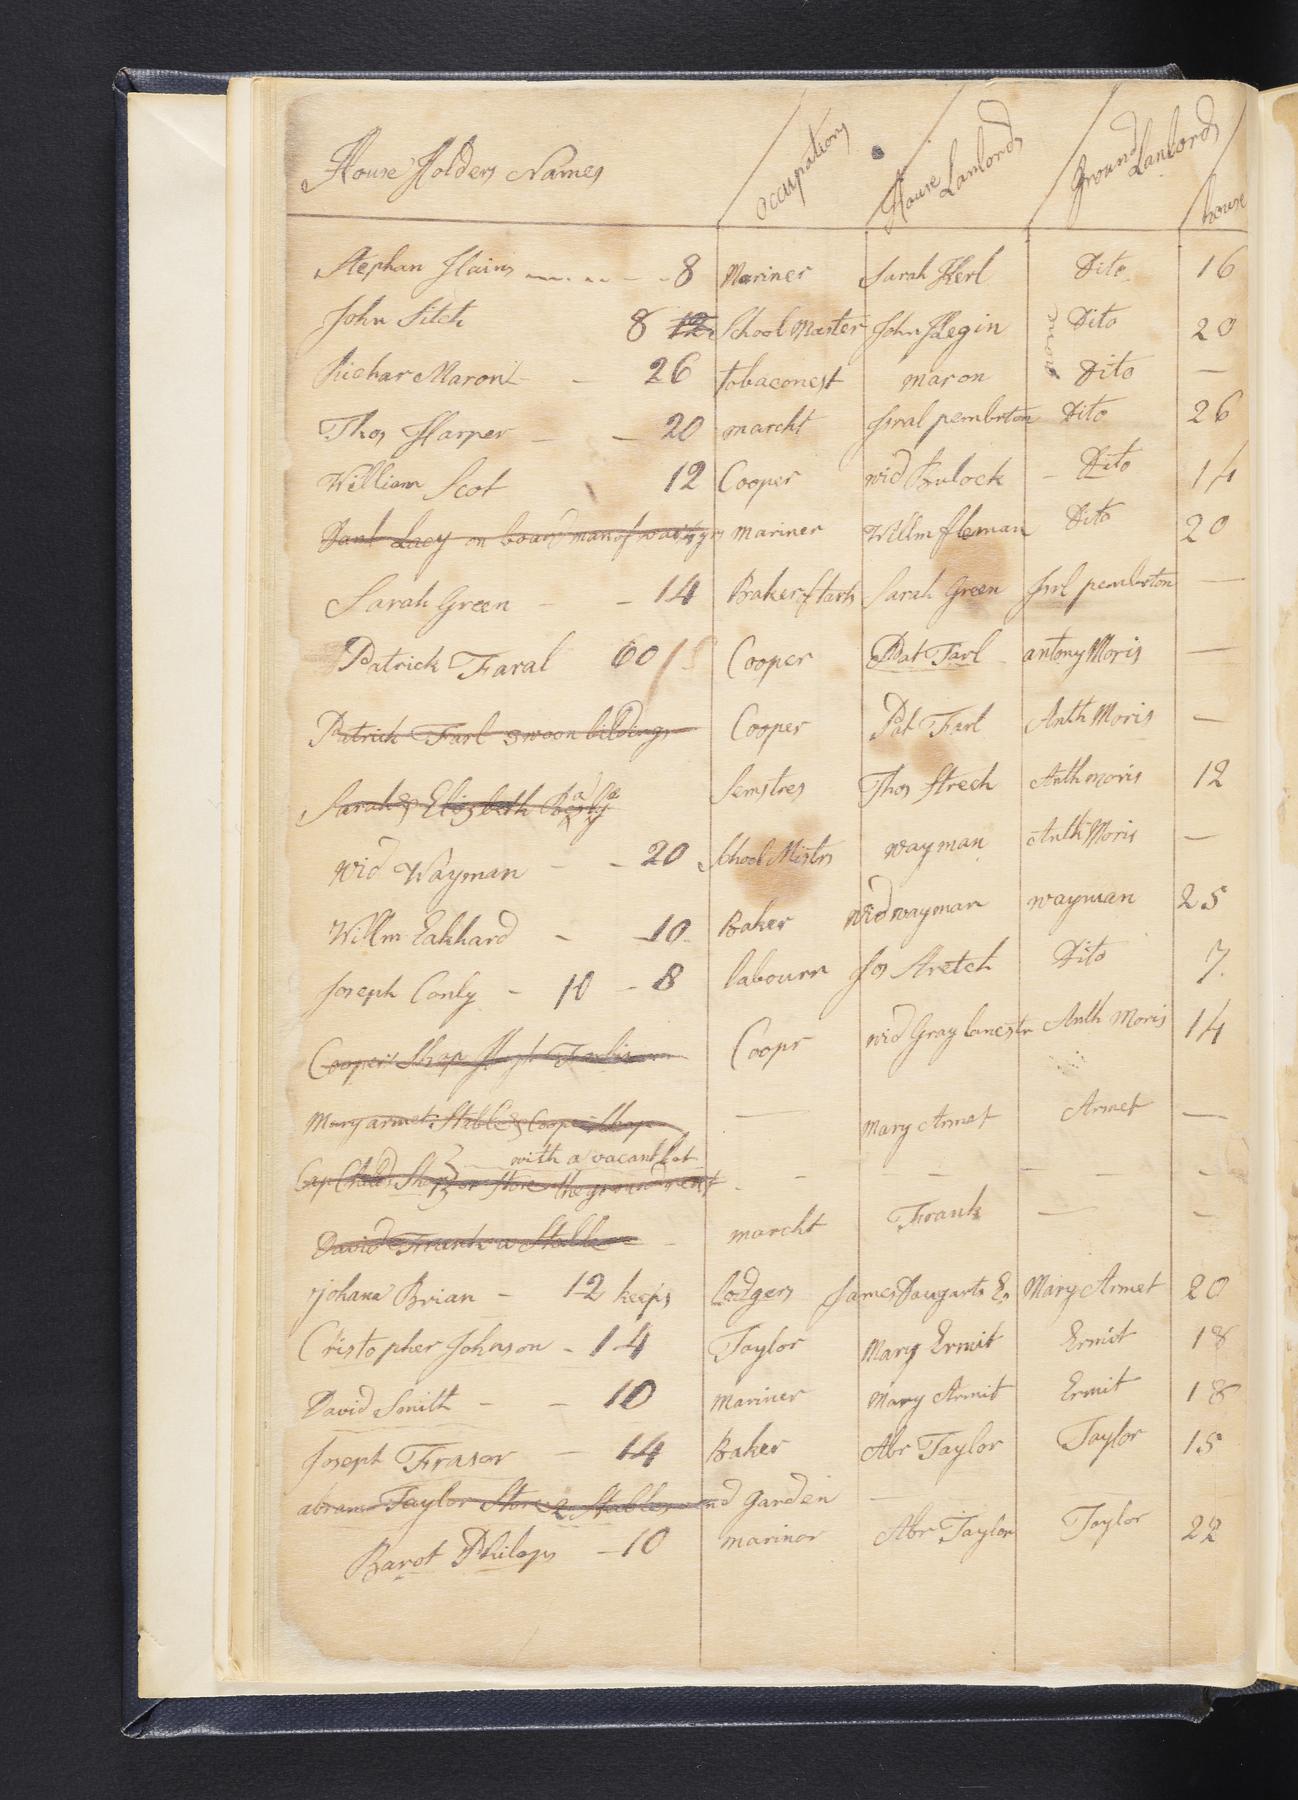 House Holders Names occupations House Lanlords Ground Lanlords house
Stephan Hains 8 Mariner Sarah Kerl Dito 16
John Sitch 8 12 School Master John Hegin Dito 20
Richar Maron 26 tobaconest maron Dito —
Thos Harper — — 20 marcht Isral pembrton Dito 26
William Scot 12 Cooper wid Bulock — Dito 14
Danl Lacy on board man of war mariner Willm fleman Dito 20
Sarah Green — — 14 Baker Sarah Green Isrl pembrton —
Patrick Faral 60 Cooper Pat Farl antony Moris —
Patrick Farl bildings Cooper Pat Farl Anth Moris —
Sarah & Elizbeth Semstres Thos Strech Anth moris 12
wid Wayman — — 20 School Mistrs wayman Anth Moris —
Willm Eakhard — — 10 Baker wid wayman wayman 25
Joseph Conly — 10 — 8 labourr Jos Stretch Dito 7
Coopers Shop Coopr wid Gray Anth Moris 14
Mary armet Stable & Coopr Shop — Mary Armet Armet —
with a vacant Lot
Cap Childs Shop or Store the ground rent - - - - -
David Frank a Stable — marcht Frank — —
johana Brian — 12 keeps lodgers James Daugarts Es Mary Armet 20
Cristopher Johnson - 14 Taylor Mary Ermit Ermit 18
David Smith — — 10 mariner Mary Armit Ermit 18
Joseph Frasor — 14 Baker Abr Taylor Taylor 15
abram Taylor Store & Stables and Garden —
Barot Philops — 10 marinor Abr Taylor Taylor 22